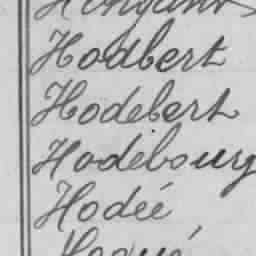 Hodbert
Hodebert
Hodebourg
Hodée